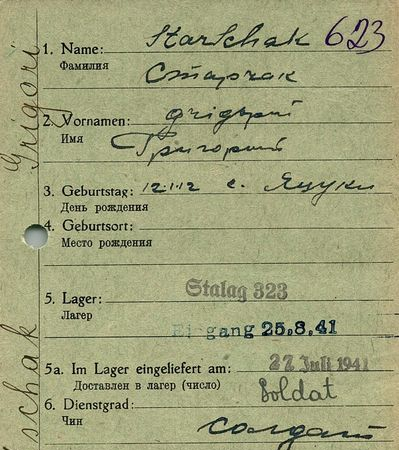 623
1. Name: Starschak
Фамилия Старчак
2. Vornamen: Grigorii
Имя Григорий
3. Geburtstag: 12.1.12 с. Яцуки
День рождения
4. Geburtsort:
Место рождения
5. Lager: Stalag 323
Лагерь
Eingang 25.8.41
5a. Im Lager eingeliefert am: 27 Juli 1941
Доставлен в лагерь (число)
6. Dienstgrad: Soldat
Чин солдат
Grigori
schak